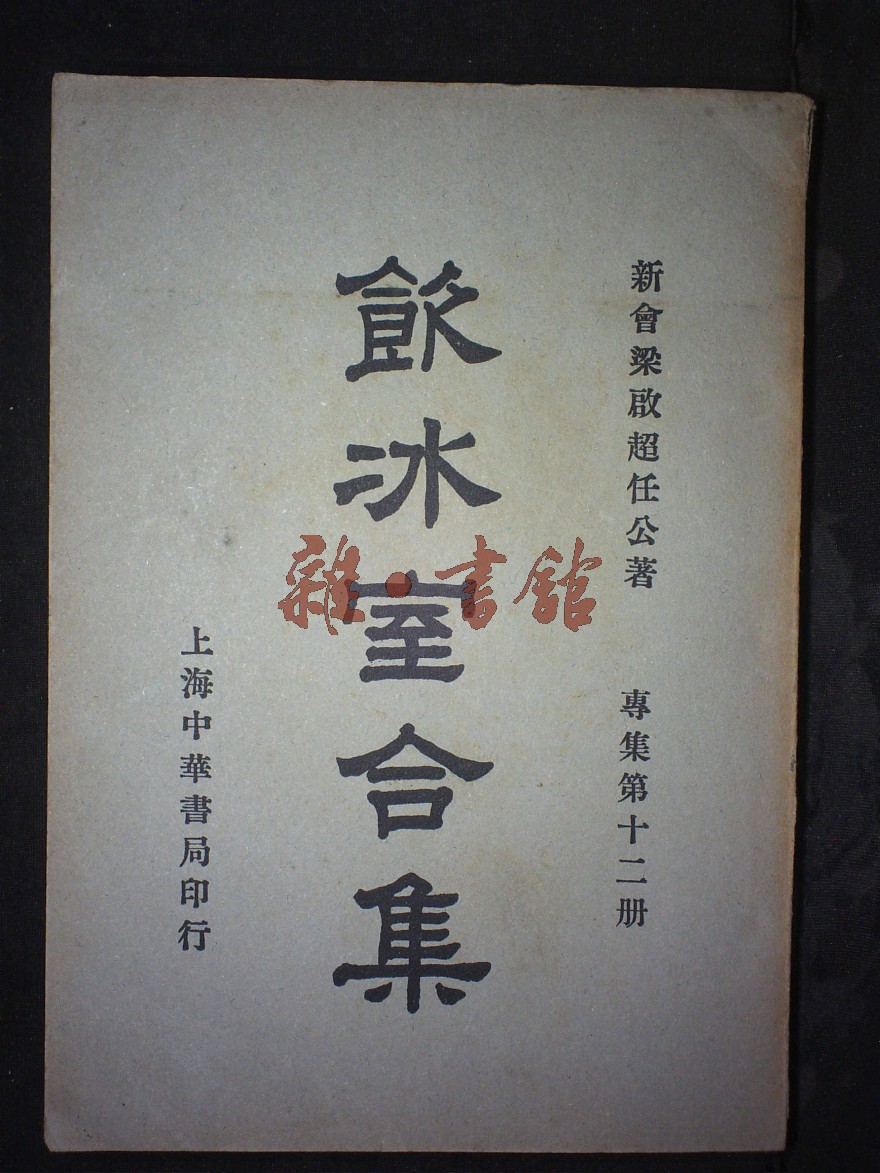 新會梁啟超任公著
專集第十二册
飲冰室合集
上海中華書局印行
雜·書館